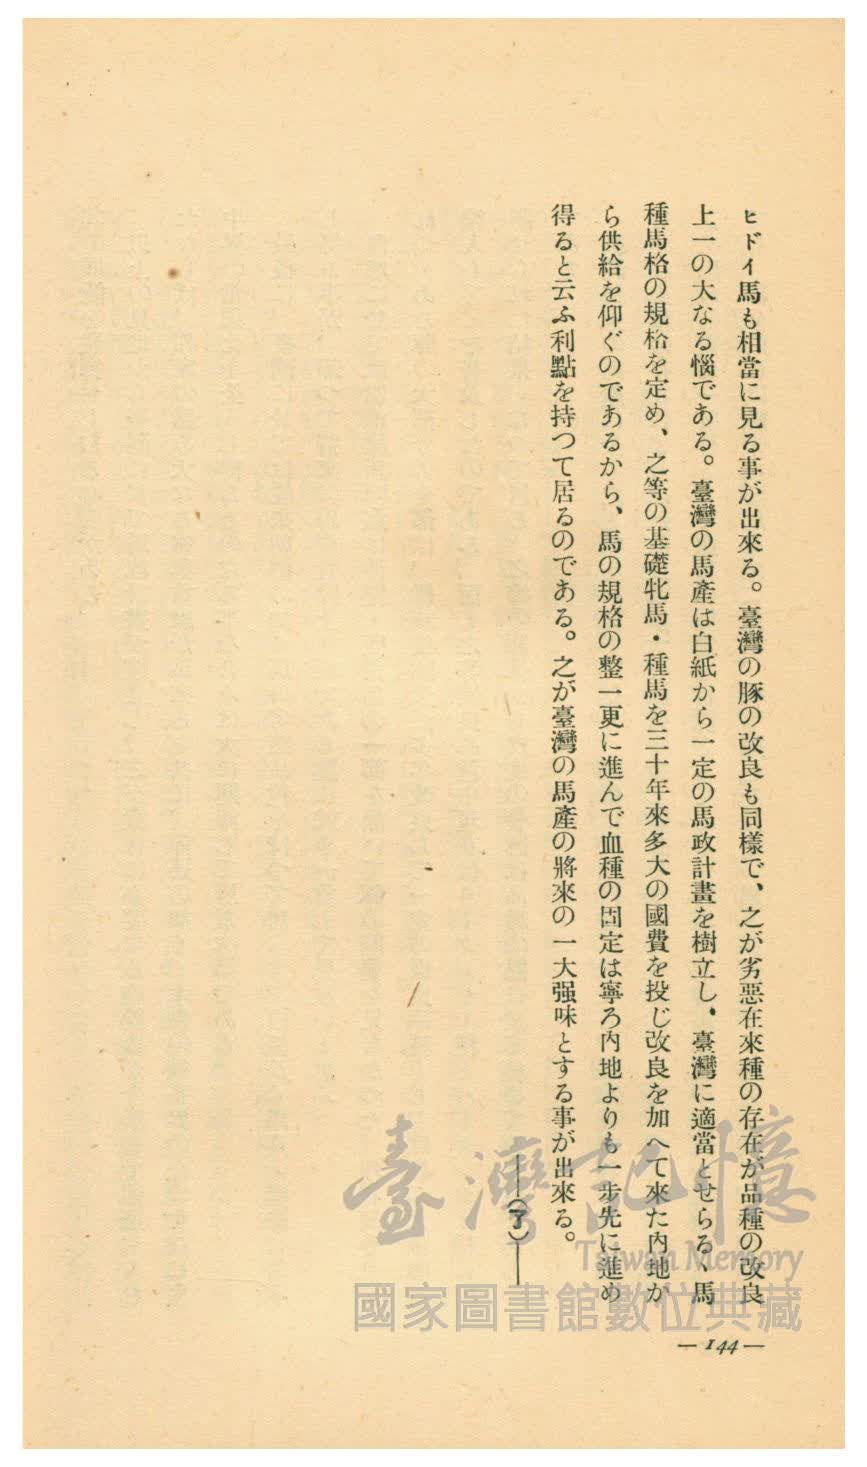 ヒドイ馬も相當に見る事が出來る。臺灣の豚の改良も同樣で、之が劣惡在來種の存在が品種の改良
上一の大なる惱である。臺灣の馬產は白紙から一定の馬政計畫を樹立し、臺灣に適當とせらるゝ馬
種馬格の規格を定め、之等の基礎牝馬・種馬を三十年來多大の國費を投じ改良を加へて來た內地か
ら供給を仰ぐのであるから、馬の規格の整一更に進んで血種の固定は寧ろ內地よりも一步先に進め
得ると云ふ利點を持つて居るのである。之が臺灣の馬產の將來の一大强味とする事が出來る。
――(了)――
― 144 ―
臺灣記憶
Taiwan Memory
國家圖書館數位典藏